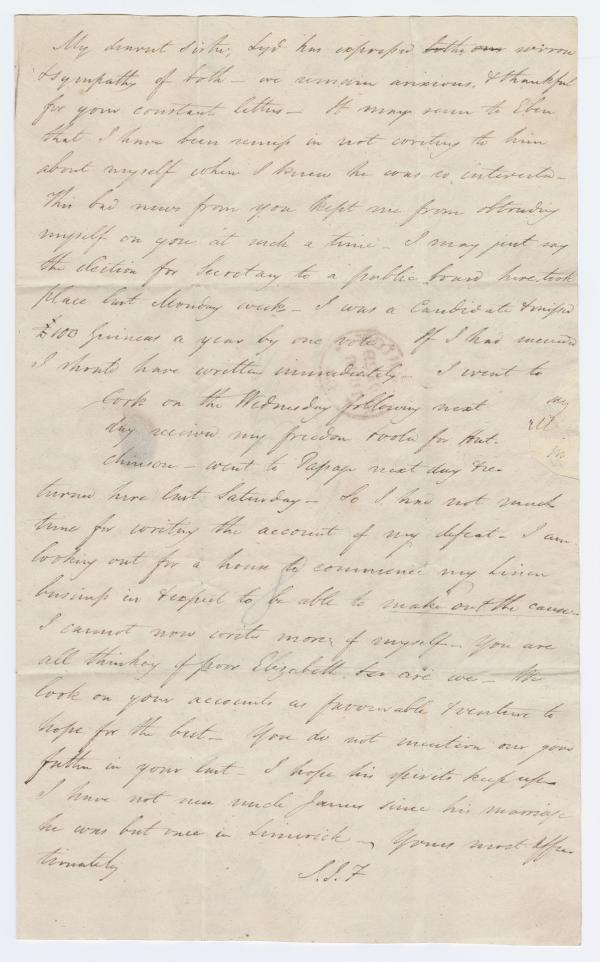 My dearest sister, Lyd has expressed both our sorrow
& sympathy of both - we remain anxious, & thankful
for your constant letters - It may seem to Eben
that I have been remiss in not writing to him
about myself when I knew he was so interested -
This bad news from you kept me from obtruding
myself on you at such a time - I may just say
the election for Secretary to a public board here took
place last Monday week - I was a Candidate & missed
£100 Guineas a year by one vote If I had succeeded
I should have written immediately - I went to
Cork on the Wednesday following next
day received my freedom for Hut-
chinson - went to Passage next day & re-
turned here last Saturday - So I had not much
time for writing the account of my defeat - I am
looking out for a house to commence my Linen
business in & expect to be able to make out the cause -
I cannot now write more of myself - You are
all thinking of poor Elizabeth so are we - We
look on your accounts as favourable & venture to
hope for the best - You do not mention our poor
father in your last - I hope his spirits keep up -
I have not seen uncle James since his marriage
he was but once in Limerick - Yours most affec-
tionately
S.I.F